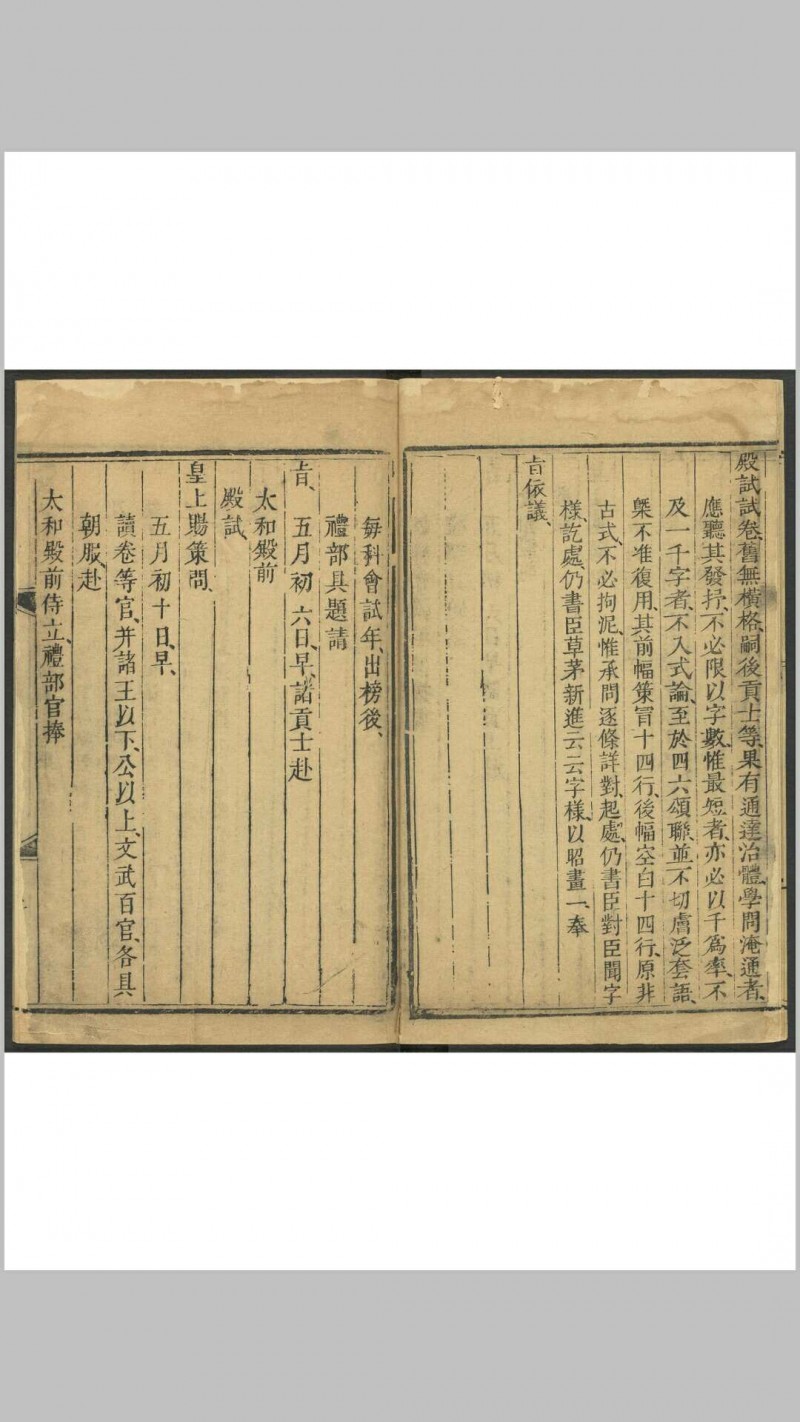 殿試試卷、舊無橫格、嗣後貢士等、果有通達治體、學問淹通者、
應聽其發抒、不必限以字數、惟最短者、亦必以千為率、不
及一千字者、不入式論、至於四六頌聯、並不切膚泛套語、
槩不准復用、其前幅策冒十四行、後幅空白十四行、原非
古式、不必拘泥、惟承問逐條詳對、起處、仍書臣對臣聞字
樣、訖處、仍書臣草茅新進云云字樣、以昭畫一、奉
旨依議、
每科會試年、出榜後、
禮部具題請
旨、五月初六日、早、諸貢士赴
太和殿前
殿試、
皇上賜策問、
五月初十日、早、
讀卷等官、并諸王以下、公以上、文武百官、各具
朝服、赴
太和殿前侍立、禮部官捧